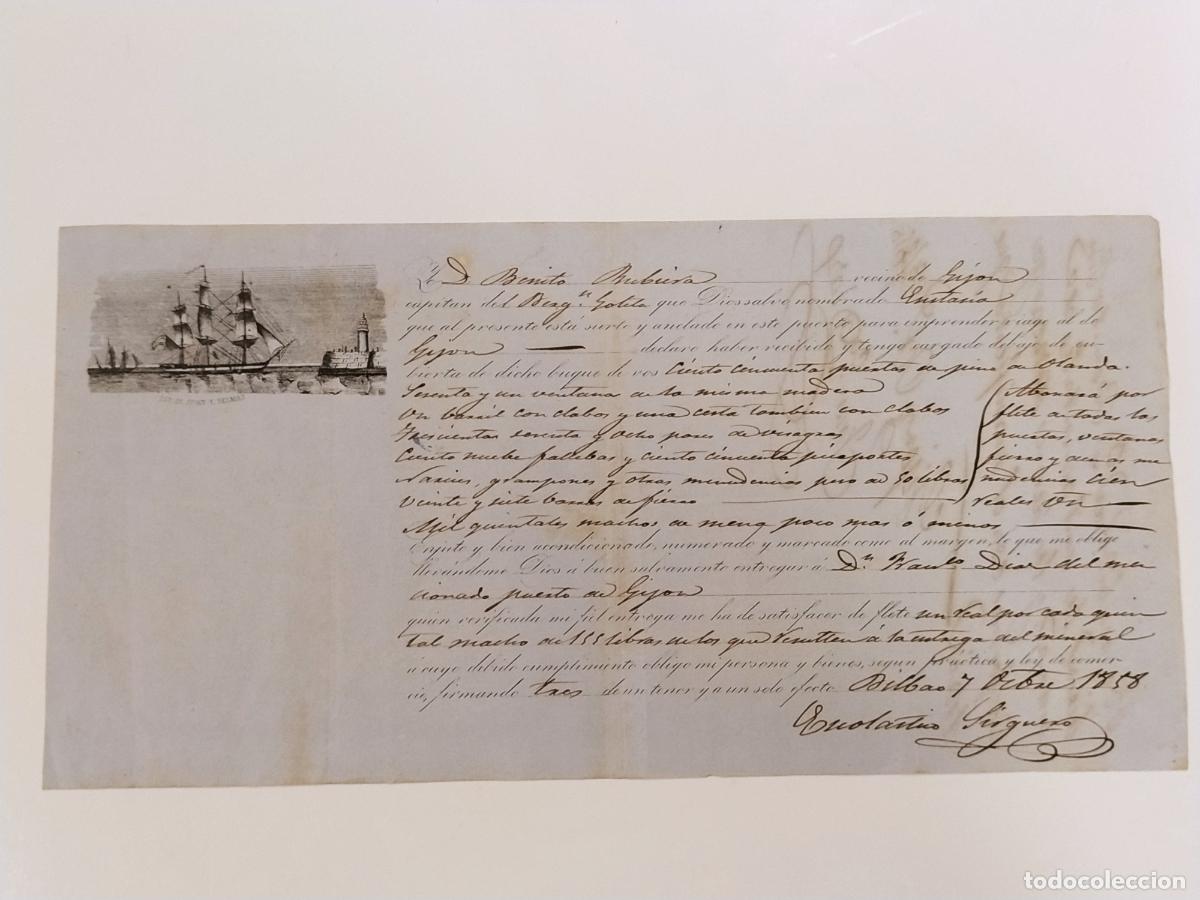 Yo D Benito Rubiera vecino de Gijon
capitan del Bergn Goleta que Dios salve nombrado Eustasia
que al presente está surto y anclado en este puerto para emprender viage al de
Gijon declaro haber recibido y tengo cargado debajo de cu-
bierta de dicho buque de vos Ciento cincuenta puertas de pino de Olanda.
Sesenta y un ventana de la misma madera
Un barril con clabos y una cesta tambien con clabos
Trescientas sesenta y ocho pares de visagras
Ciento nuebe fallebas y ciento cincuenta picaportes
Narices, grampones y otras menudencias peso de 50 libras
Veinte y siete barras de fierro
Abonará por
flete de todas las
puertas, ventanas
fierro y demas me
nudencias cien
reales Vn
Mil quintales machos de mena poco mas ó menos
Enjuto y bien acondicionado, numerado y marcado como al margen, lo que me obligo
llevándome Dios á buen salvamento entregar á Dn Franco Diaz del men
cionado puerto de Gijon
quien verificada mi fiel entrega me ha de satisfacer de flete un real por cada quin
tal macho de 155 libras de los que resulten á la entrega del mineral
á cuyo debido cumplimiento obligo mi persona y bienes, segun práctica y ley de comer-
cio, firmando tres de un tenor y a un solo efecto Bilbao 7 Octbre 1858
todocoleccion